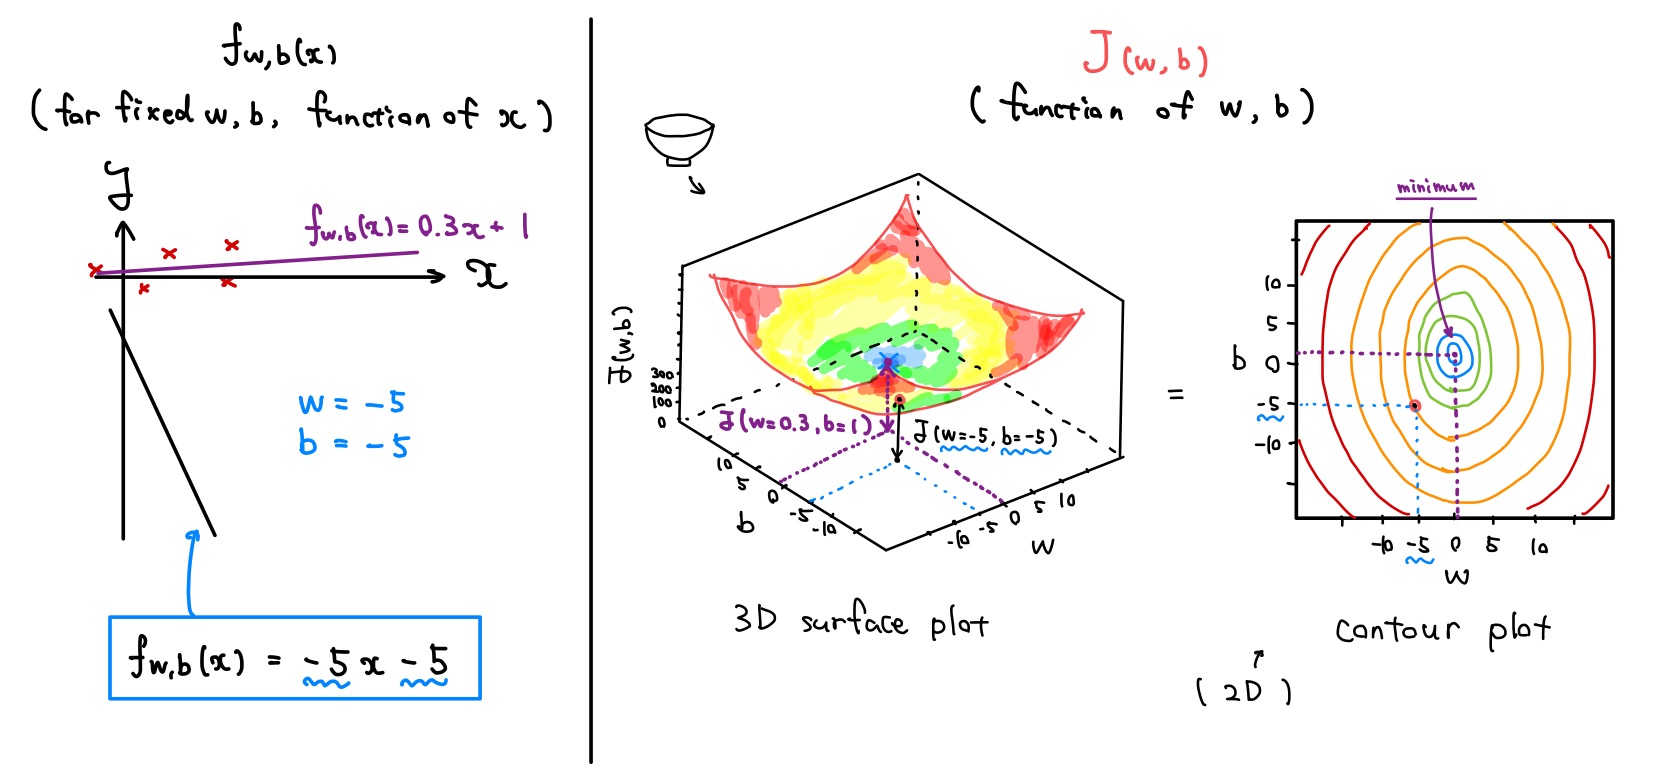 fw,b(x)
(for fixed w, b, function of x)
y
fw,b(x) = 0.3x + 1
x
w = -5
b = -5
fw,b(x) = -5x -5
J(w,b)
(function of w, b)
J(w,b)
300
200
100
0
J(w=0.3, b=1)
J(w=-5, b=-5)
10
5
0
-5
-10
b
-10
-5
0
5
10
w
3D surface plot
=
minimum
10
5
b 0
-5
-10
-10 -5 0 5 10
w
contour plot
(2D)